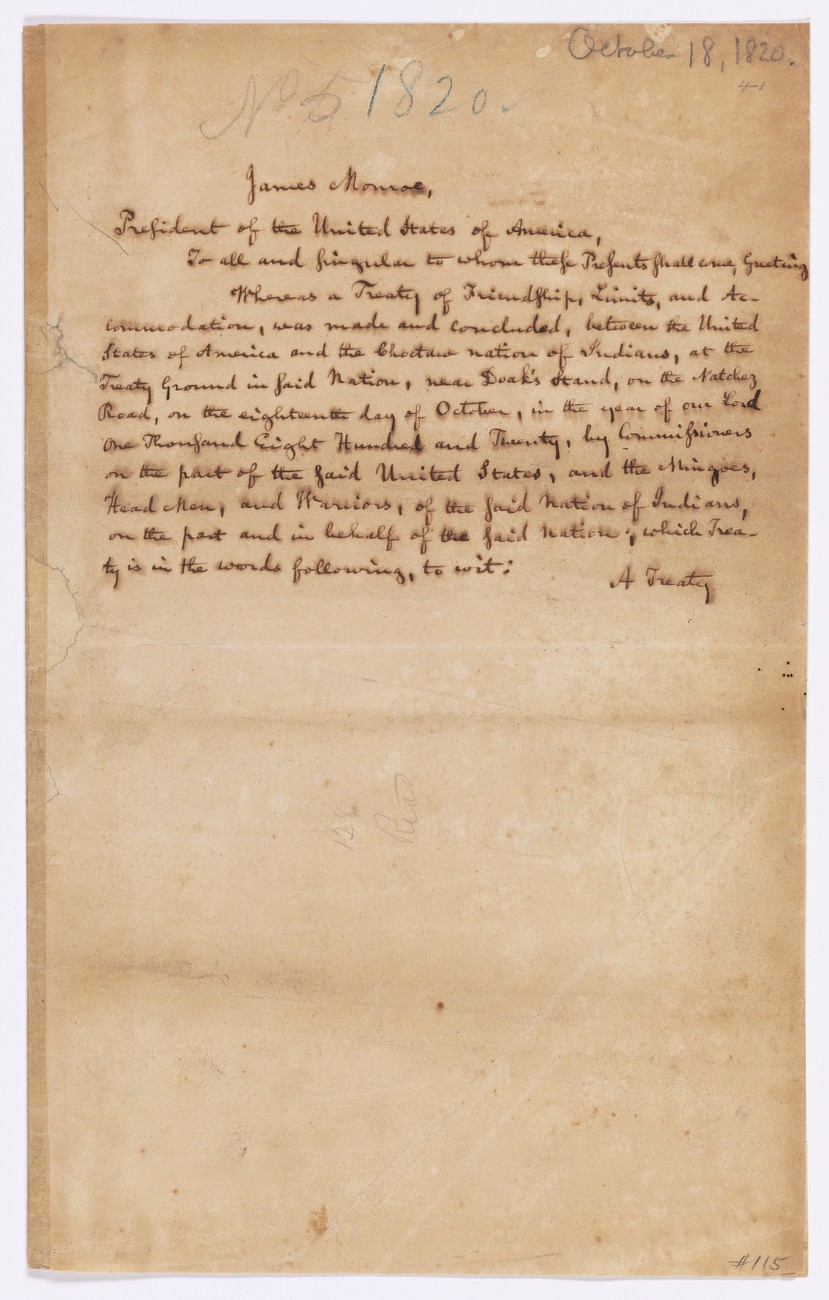 October 18, 1820.
4-1
No 5 1820.
James Monroe,
President of the United States of America,
To all and singular to whom these Presents shall come, Greeting
Whereas a Treaty of Friendship, Limits, and Ac-
commodation, was made and concluded, between the United
States of America and the Choctaw nation of Indians, at the
Treaty Ground in said Nation, near Doak's Stand, on the Natchez
Road, on the eighteenth day of October, in the year of our Lord
One Thousand Eight Hundred and Twenty, by Commissioners
on the part of the said United States, and the Mingoes,
Head Men, and Warriors, of the said Nation of Indians,
on the part and in behalf of the said Nation; which Trea-
ty is in the words following, to wit:
A Treaty
Read
#115